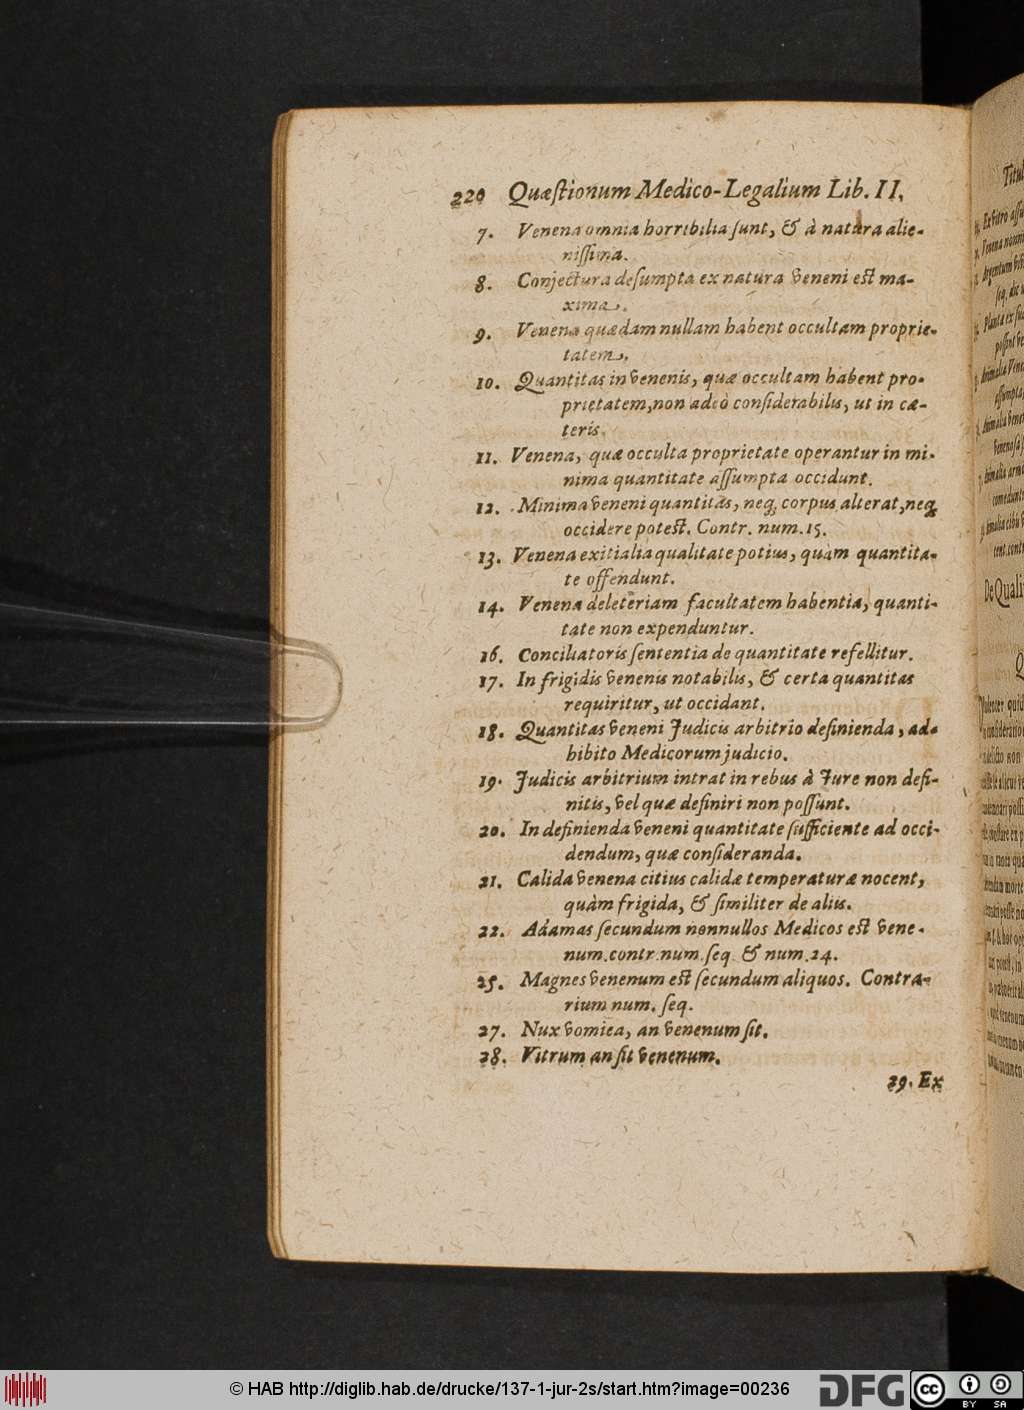 220 Quæſtionum Medico-Legalium Lib. II.
7. Venena omnia horribilia ſunt, & à natura alie-
niſſima.
8. Conjectura deſumpta ex natura veneni eſt ma-
xima.
9. Venena quædam nullam habent occultam proprie-
tatem.
10. Quantitas in venenis, quæ occultam habent pro-
prietatem, non adeò conſiderabilis, ut in cæ-
teris.
11. Venena, quæ occulta proprietate operantur in mi-
nima quantitate aſſumpta occidunt.
12. Minima veneni quantitas, neq; corpus alterat, neq;
occidere poteſt. Contr. num. 15.
13. Venena exitialia qualitate potius, quàm quantita-
te offendunt.
14. Venena deleteriam facultatem habentia, quanti-
tate non expenduntur.
16. Conciliatoris ſententia de quantitate refellitur.
17. In frigidis venenis notabilis, & certa quantitas
requiritur, ut occidant.
18. Quantitas veneni Judicis arbitrio definienda, ad-
hibito Medicorum judicio.
19. Judicis arbitrium intrat in rebus à Jure non defi-
nitis, vel quæ definiri non poſſunt.
20. In definienda veneni quantitate ſufficiente ad occi-
dendum, quæ conſideranda.
21. Calida venena citius calidæ temperaturæ nocent,
quàm frigida, & ſimiliter de aliis.
22. Adamas ſecundum nonnullos Medicos eſt vene-
num. contr. num. ſeq. & num. 24.
25. Magnes venenum eſt ſecundum aliquos. Contra-
rium num. ſeq.
27. Nux vomica, an venenum ſit.
28. Vitrum an ſit venenum.
29. Ex
Titul
Ex vitro aſſu
Argentum
ſeq.
Planta ex
Animalia Vene
aſſumpta
Animalia
Animalia
De Quali
© HAB http://diglib.hab.de/drucke/137-1-jur-2s/start.htm?image=00236
DFG
cc
BY SA